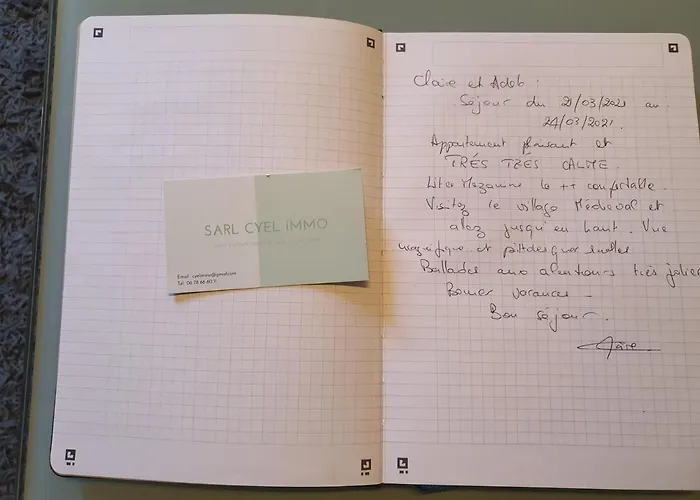 SARL CYEL IMMO
Email : cyelimmo@gmail.com
Tel: 06 78 66 60 11
Claire et Adeb :
Séjour du 21/03/2021 au
24/03/2021.
Appartement plaisant et
TRÉS TRÉS CALME.
Liter Mezanine le ++ confortable.
Visitez le village Médieval et
allez jusqu'en haut. Vue
magnifique et pittoresques ruelles
Ballades aux alentours très jolies
Bonnes vacances –
Bon séjour.
Claire